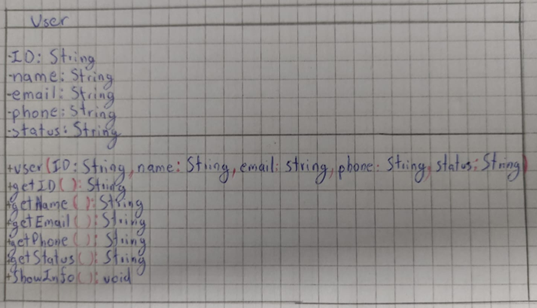 User
-ID: String
-name: String
-email: String
-phone: String
-status: String
+user(ID: String, name: String, email: string, phone: String, status: String)
+getID( ): String
+getName( ): String
+getEmail( ): String
+getPhone( ): String
+getStatus( ): String
+ShowInfo( ): void